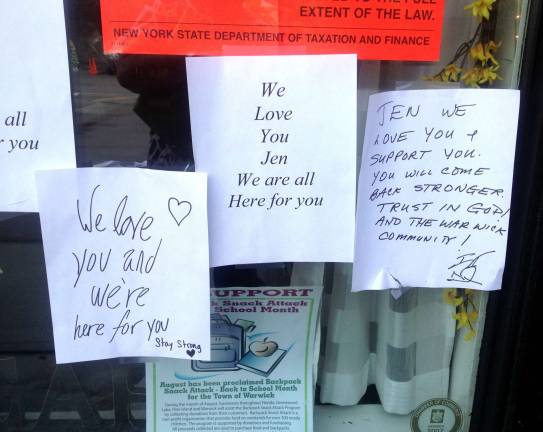 EXTENT OF THE LAW.
NEW YORK STATE DEPARTMENT OF TAXATION AND FINANCE
all
you
We
Love
You
Jen
We are all
Here for you
JEN WE
LOVE YOU &
SUPPORT YOU.
YOU WILL COME
BACK STRONGER.
TRUST IN GOD!
AND THE WARWICK
COMMUNITY!
We love
you and
we're
here for you
Stay Strong
SUPPORT
Snack Attack
School Month
August has been proclaimed Backpack
Snack Attack - Back to School Month
for the Town of Warwick